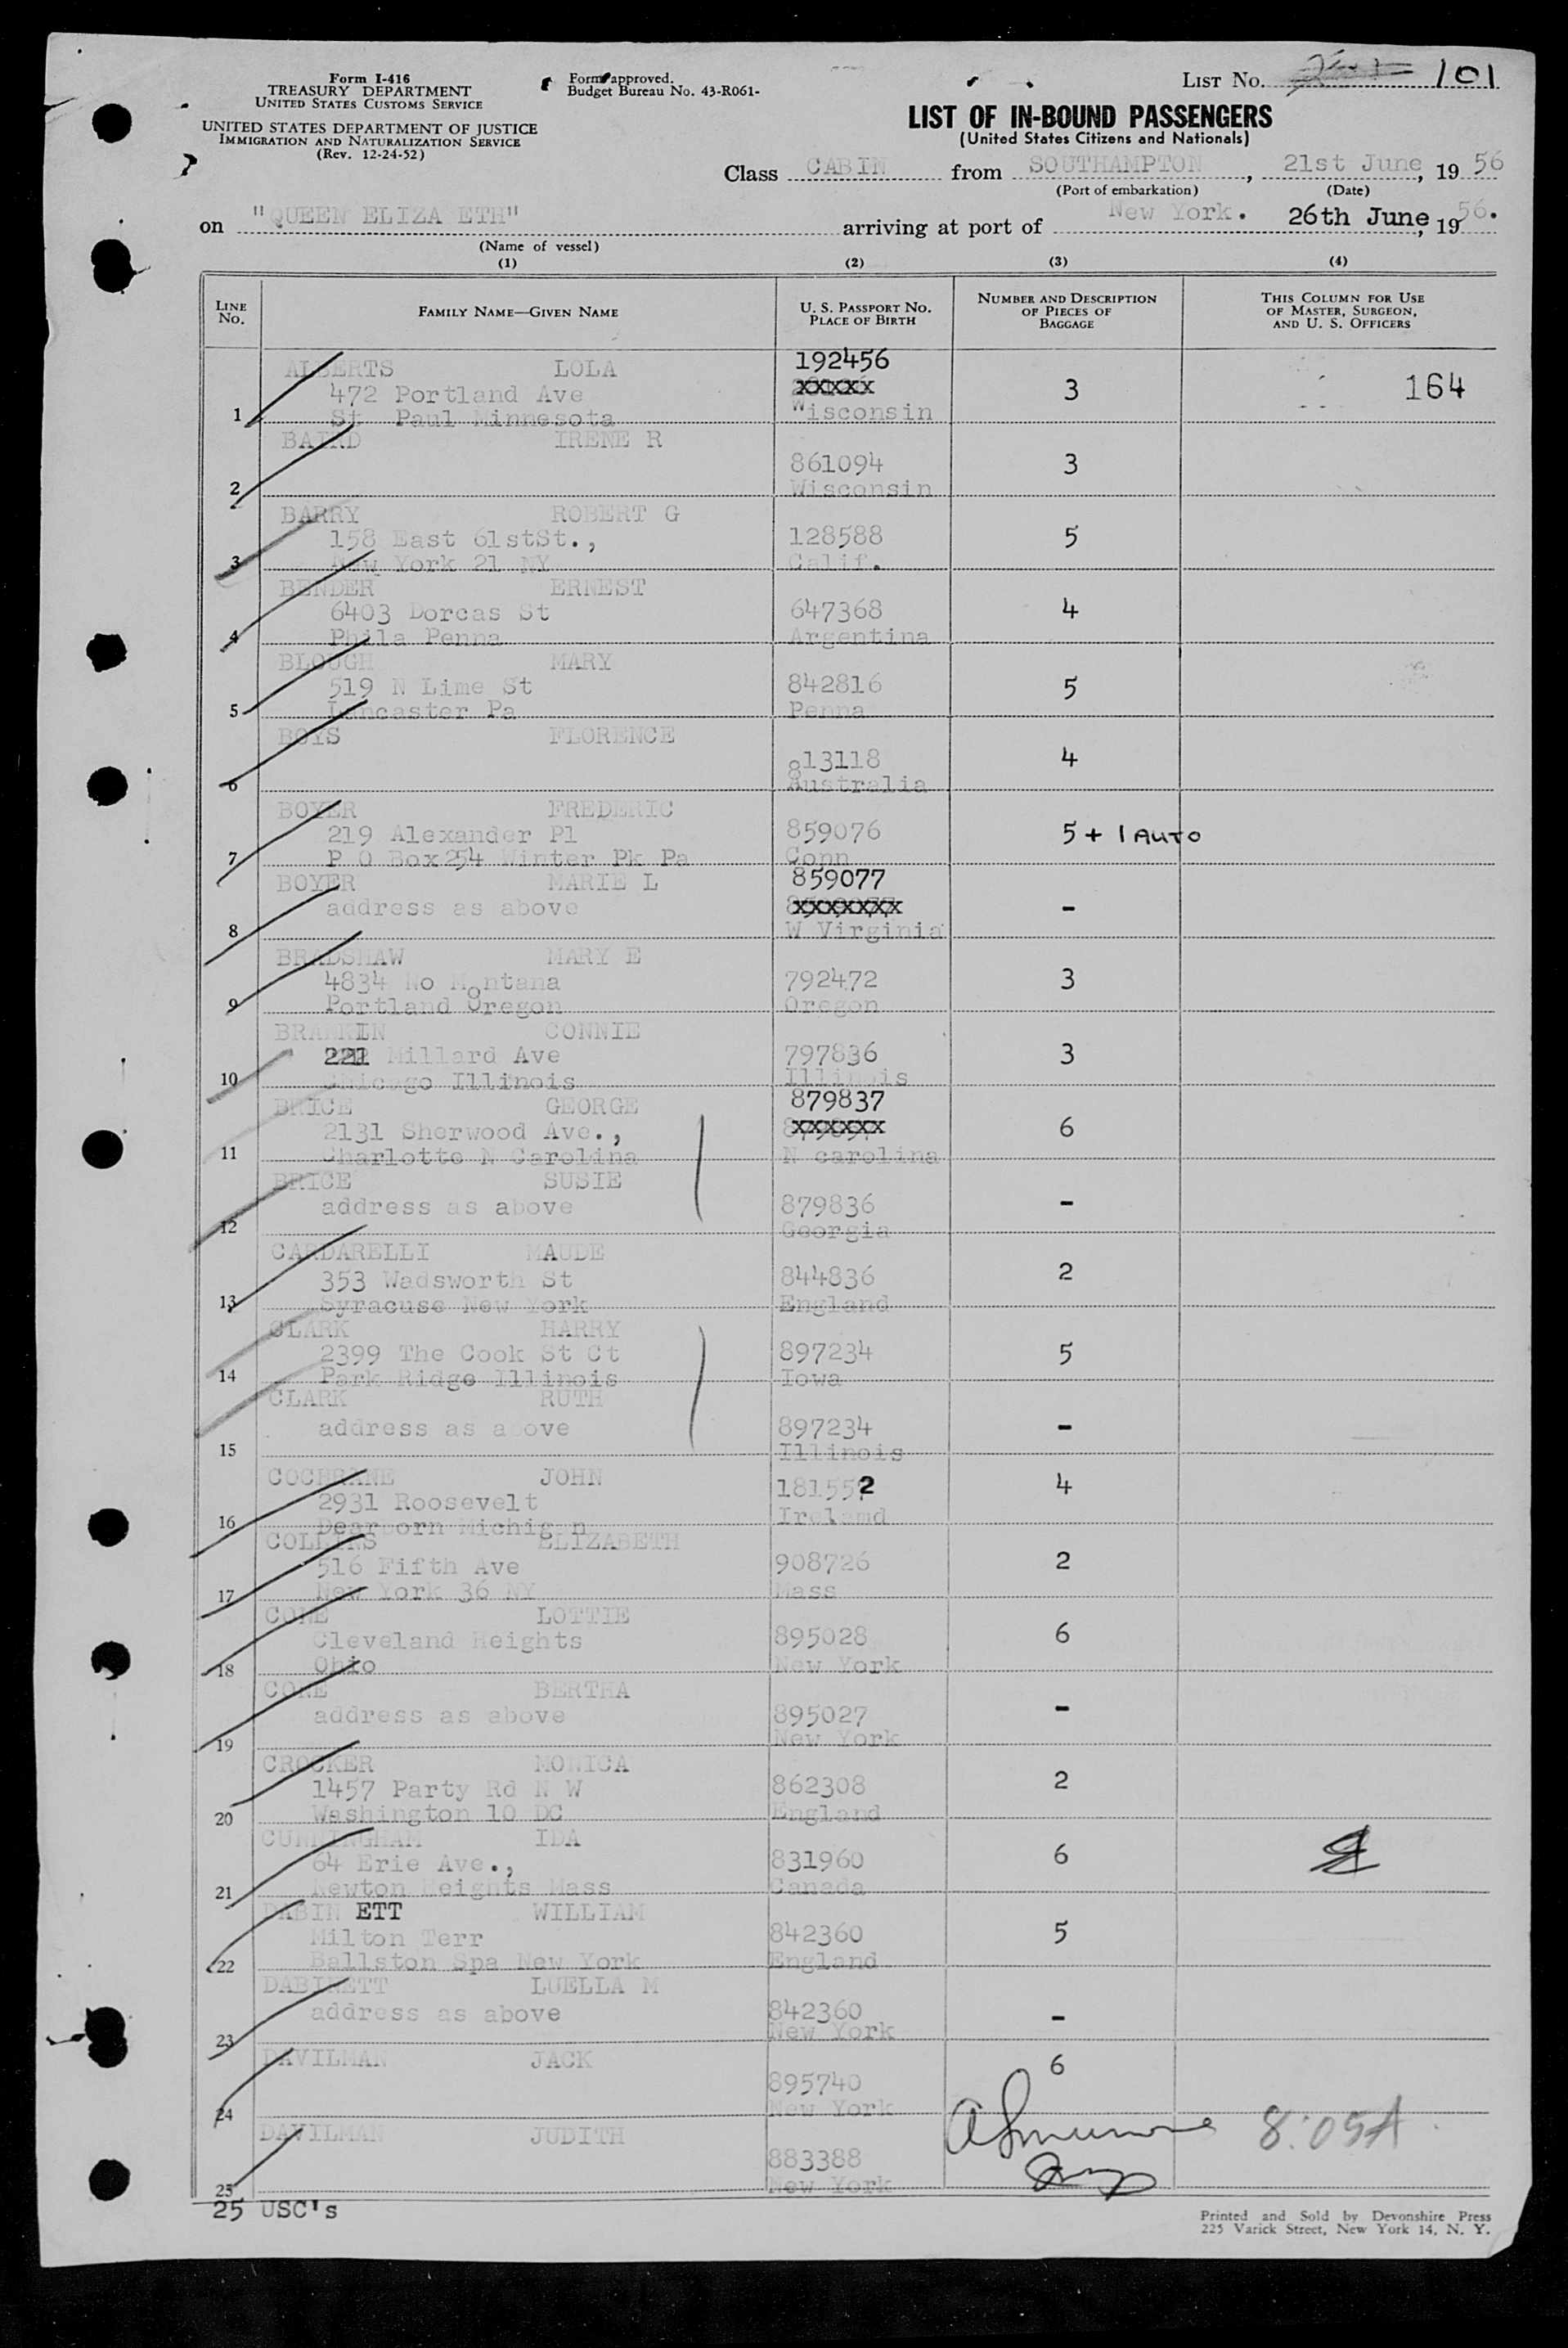 Form I-416
TREASURY DEPARTMENT
UNITED STATES CUSTOMS SERVICE
UNITED STATES DEPARTMENT OF JUSTICE
IMMIGRATION AND NATURALIZATION SERVICE
(Rev. 12-24-52)
Form approved.
Budget Bureau No. 43-R061-
LIST No. 101
LIST OF IN-BOUND PASSENGERS
(United States Citizens and Nationals)
Class CABIN from SOUTHAMPTON, 21st June, 19 56
(Port of embarkation) (Date)
on "QUEEN ELIZA ETH" arriving at port of New York. 26th June, 19 56.
(Name of vessel)
(1) (2) (3) (4)
LINE No. FAMILY NAME—GIVEN NAME U. S. PASSPORT No. PLACE OF BIRTH NUMBER AND DESCRIPTION OF PIECES OF BAGGAGE THIS COLUMN FOR USE OF MASTER, SURGEON, AND U. S. OFFICERS
ALBERTS LOLA 192456
472 Portland Ave xxxxx 3 164
1 St Paul Minnesota Wisconsin
BAIRD IRENE R
861094 3
2 Wisconsin
BARRY ROBERT G
158 East 61stSt., 128588 5
3 New York 21 NY Calif.
BENDER ERNEST
6403 Dorcas St 647368 4
4 Phila Penna Argentina
BLOUGH MARY
519 N Lime St 842816 5
5 Lancaster Pa Penna
BOYS FLORENCE
813118 4
6 Australia
BOYER FREDERIC
219 Alexander Pl 859076 5 + 1 AUTO
7 P O Box 254 Winter Pk Pa Conn
BOYER MARIE L 859077
address as above xxxxxxx -
8 W Virginia
BRADSHAW MARY E
4834 No Montana 792472 3
9 Portland Oregon Oregon
CONNIE
221 Millard Ave 797836 3
10 Chicago Illinois Illinois
BRICE GEORGE 879837
2131 Sherwood Ave., xxxxxx 6
11 Charlotte N Carolina N carolina
BRICE SUSIE
address as above 879836 -
12 Georgia
CARDARELLI MAUDE
353 Wadsworth St 844836 2
13 Syracuse New York England
CLARK HARRY
2399 The Cook St Ct 897234 5
14 Park Ridge Illinois Iowa
CLARK RUTH
address as a ove 897234 -
15 Illinois
COCHRANE JOHN
2931 Roosevelt 181552 4
16 Dearborn Michigan Irelamd
COLLINS ELIZABETH
516 Fifth Ave 908726 2
17 New York 36 NY Mass
CONE LOTTIE
Cleveland Heights 895028 6
18 Ohio New York
CONE BERTHA
address as above 895027 -
19 New York
CROCKER MONICA
1457 Party Rd N W 862308 2
20 Washington 10 DC England
CUNNINGHAM IDA
64 Erie Ave., 831960 6
21 Newton Heights Mass Canada
DABIN ETT WILLIAM
Milton Terr 842360 5
22 Ballston Spa New York England
DABINETT LUELLA M
address as above 842360 -
23 New York
DAVILMAN JACK 6
895740
24 New York
DAVILMAN JUDITH 8:05A
883388
25 New York
25 USC's
Printed and Sold by Devonshire Press
225 Varick Street, New York 14, N. Y.